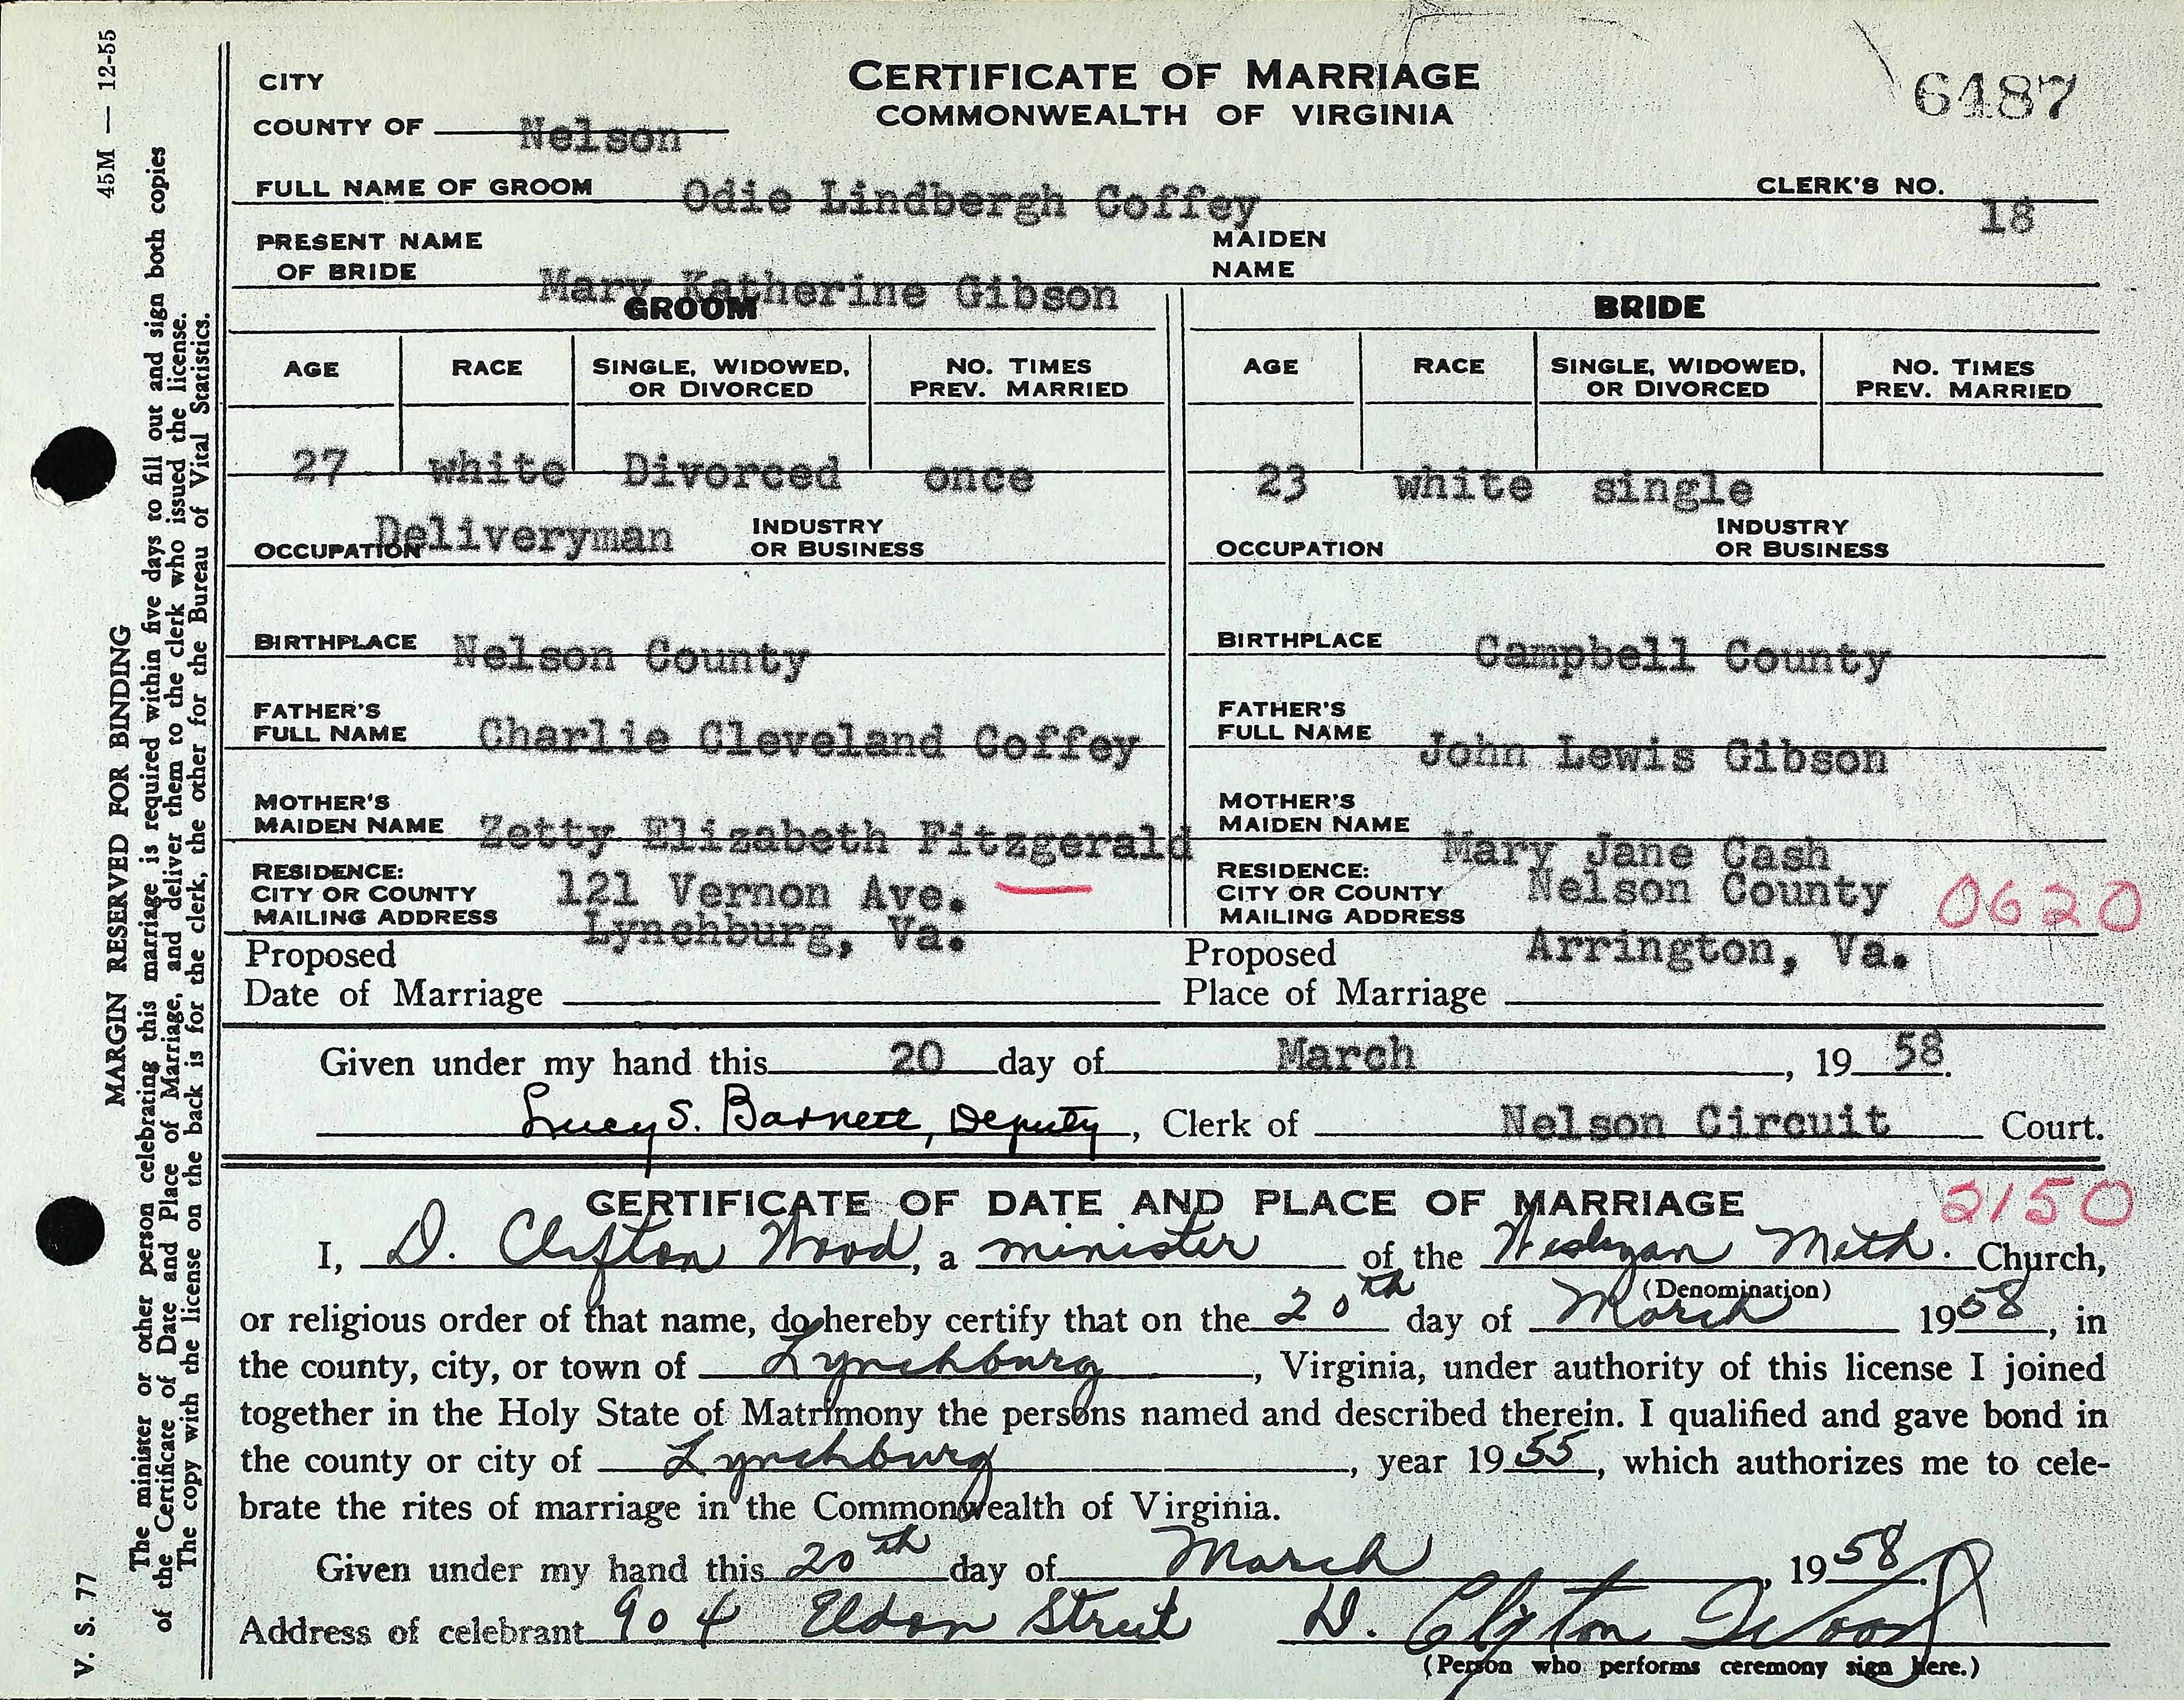 45M — 12-55
MARGIN RESERVED FOR BINDING
The minister or other person celebrating this marriage is required within five days to fill out and sign both copies
of the Certificate of Date and Place of Marriage, and deliver them to the clerk who issued the license.
The copy with the license on the back is for the clerk, the other for the Bureau of Vital Statistics.
V. S. 77
CERTIFICATE OF MARRIAGE
COMMONWEALTH OF VIRGINIA
6487
CITY
COUNTY OF Nelson
FULL NAME OF GROOM Odie Lindbergh Coffey CLERK'S NO. 18
PRESENT NAME OF BRIDE Mary Katherine Gibson MAIDEN NAME
GROOM BRIDE
AGE RACE SINGLE, WIDOWED, OR DIVORCED NO. TIMES PREV. MARRIED AGE RACE SINGLE, WIDOWED, OR DIVORCED NO. TIMES PREV. MARRIED
27 white Divorced once 23 white single
OCCUPATION Deliveryman INDUSTRY OR BUSINESS OCCUPATION INDUSTRY OR BUSINESS
BIRTHPLACE Nelson County BIRTHPLACE Campbell County
FATHER'S FULL NAME Charlie Cleveland Coffey FATHER'S FULL NAME John Lewis Gibson
MOTHER'S MAIDEN NAME Zetty Elizabeth Fitzgerald MOTHER'S MAIDEN NAME Mary Jane Cash
RESIDENCE: CITY OR COUNTY MAILING ADDRESS 121 Vernon Ave. Lynchburg, Va. RESIDENCE: CITY OR COUNTY MAILING ADDRESS Nelson County Arrington, Va. 0620
Proposed Date of Marriage Proposed Place of Marriage
Given under my hand this 20 day of March, 19 58.
Lucy S. Barnett, Deputy, Clerk of Nelson Circuit Court.
CERTIFICATE OF DATE AND PLACE OF MARRIAGE 2150
I, D. Clifton Wood, a minister of the Wesleyan Meth. Church,
(Denomination)
or religious order of that name, do hereby certify that on the 20th day of March 1958, in
the county, city, or town of Lynchburg, Virginia, under authority of this license I joined
together in the Holy State of Matrimony the persons named and described therein. I qualified and gave bond in
the county or city of Lynchburg, year 1955, which authorizes me to cele-
brate the rites of marriage in the Commonwealth of Virginia.
Given under my hand this 20th day of March, 1958.
Address of celebrant 904 Eldon Street D. Clifton Wood
(Person who performs ceremony sign here.)